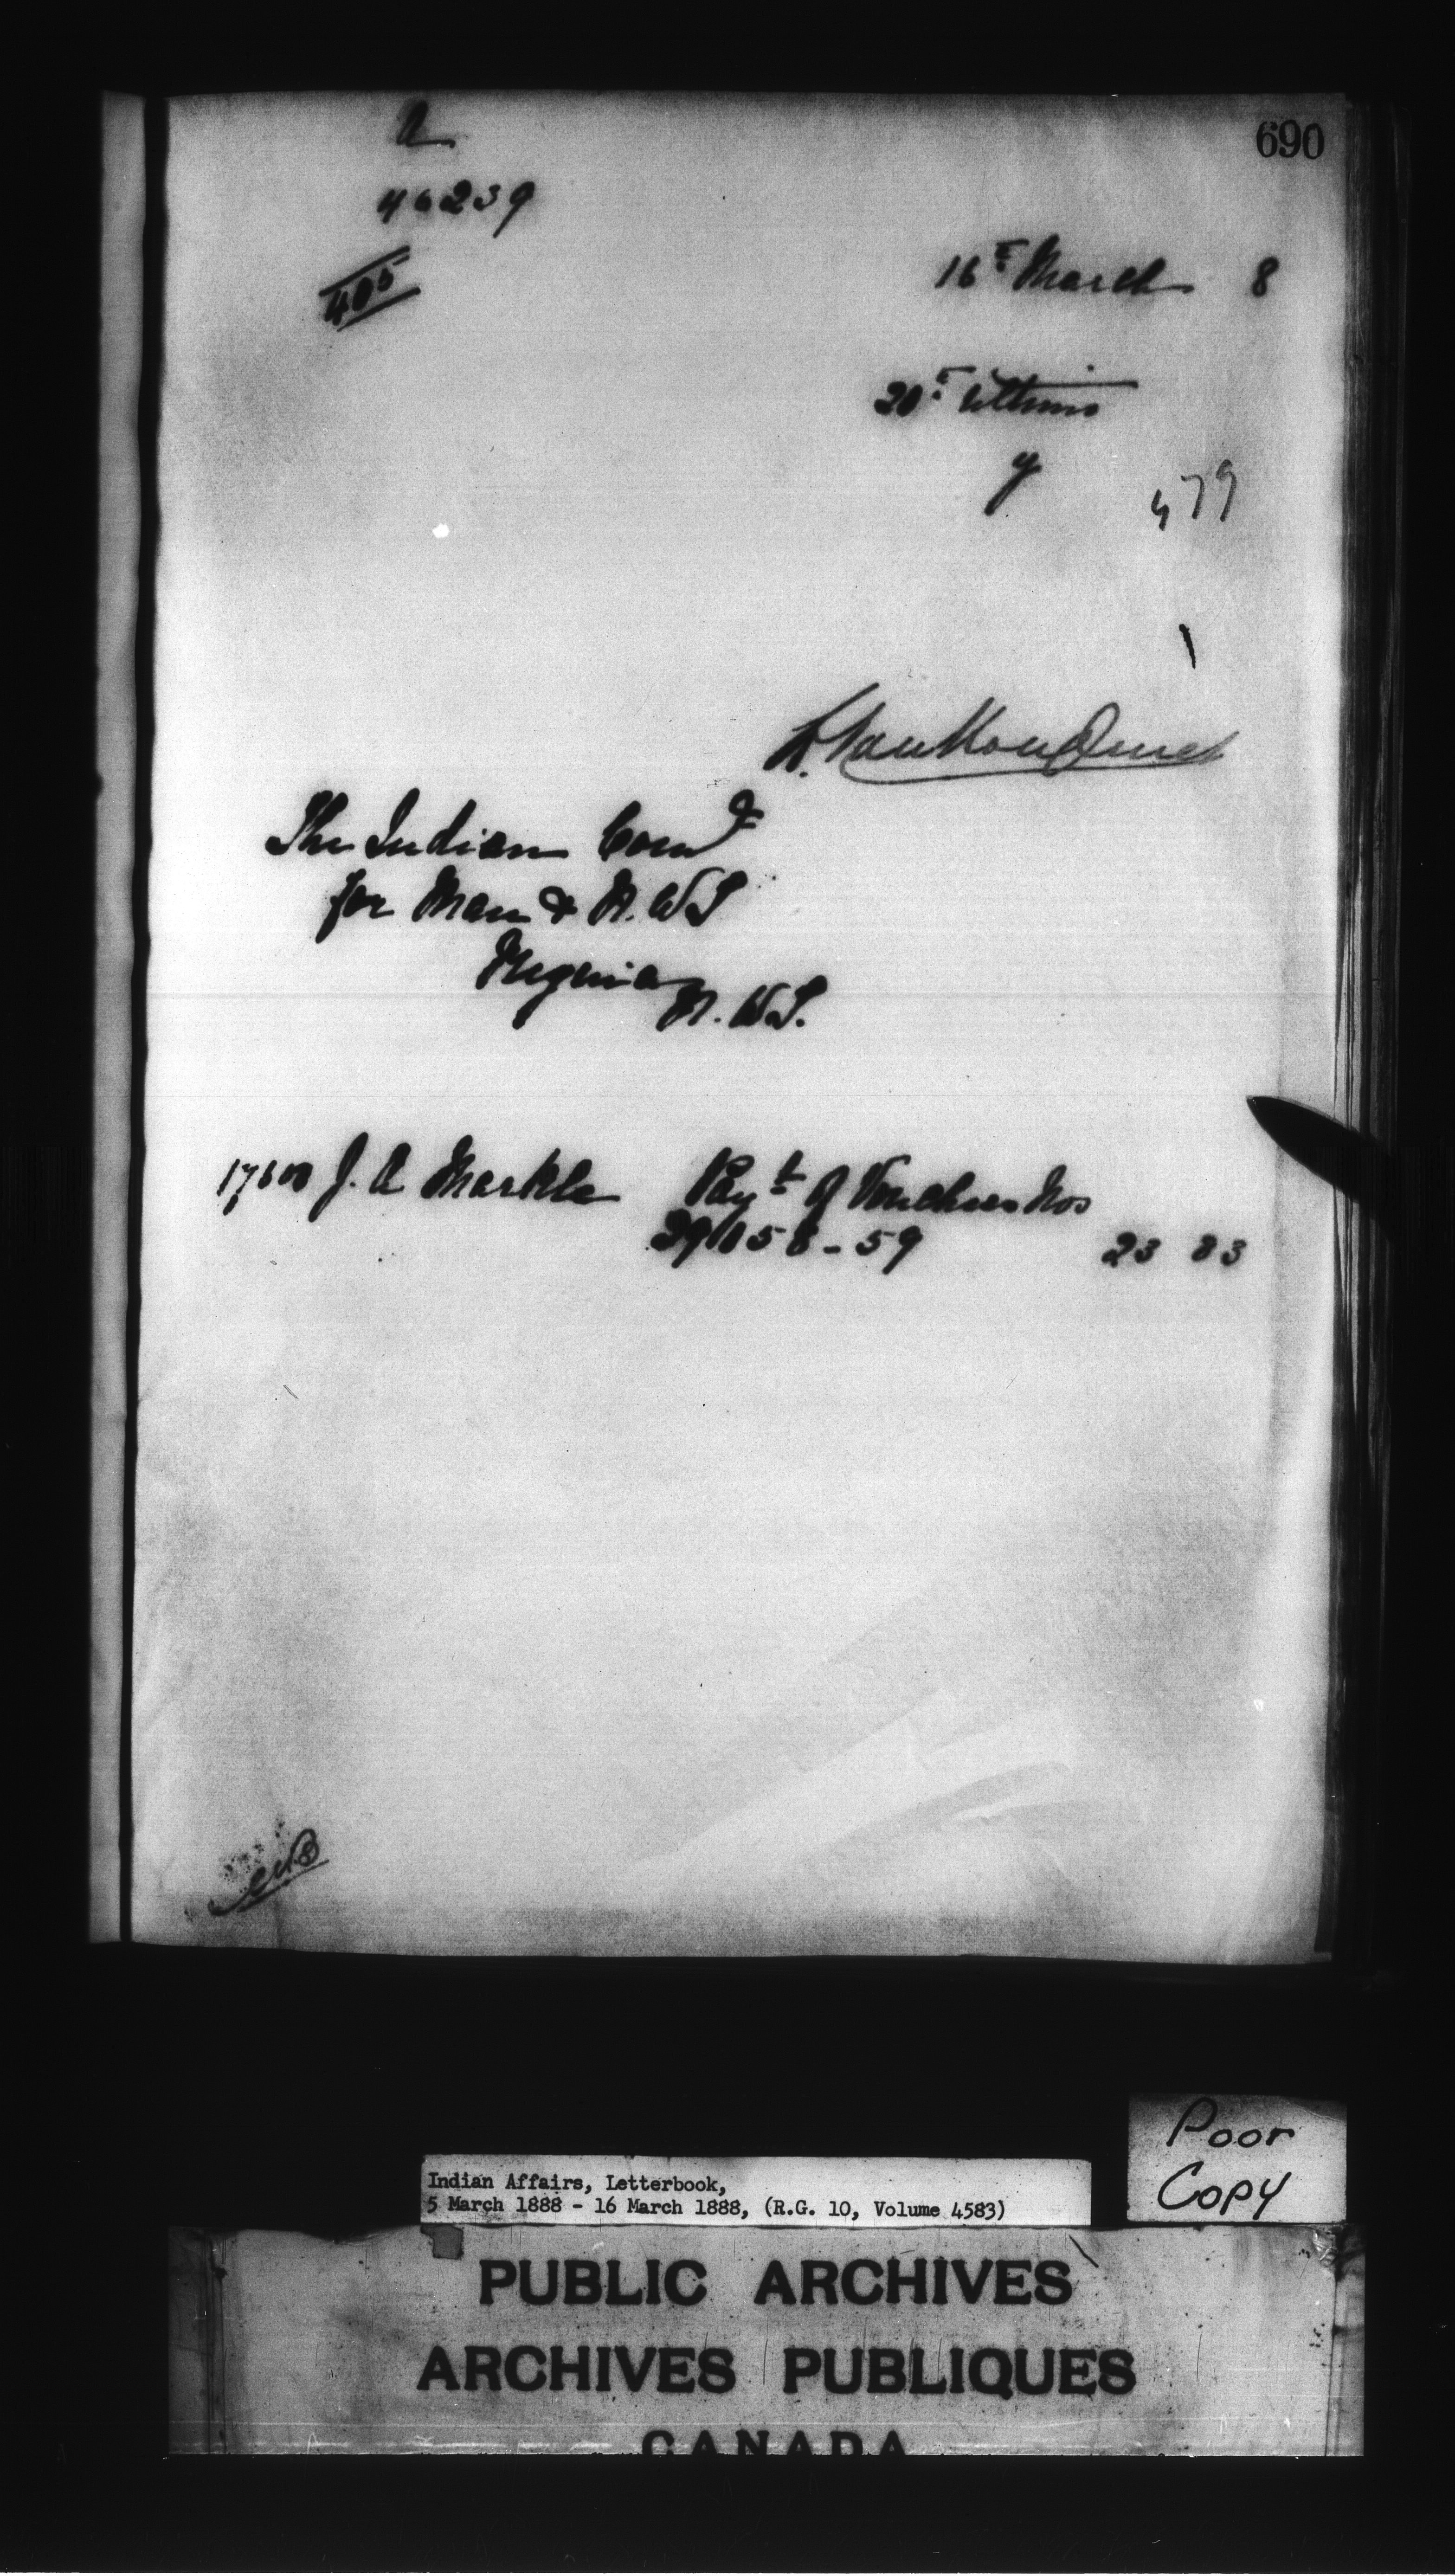 690
A
46239
405
16th March 8
20th Ultimo
y
479
L. VanKoughnet
The Indian Comr
for Man & N.W.T
Regina
N.W.T.
17600 J. A Markle Payt of Vouchers Nos
58-59 23 83
Poor
Copy
Indian Affairs, Letterbook,
5 March 1888 - 16 March 1888, (R.G. 10, Volume 4583)
PUBLIC ARCHIVES
ARCHIVES PUBLIQUES
CANADA